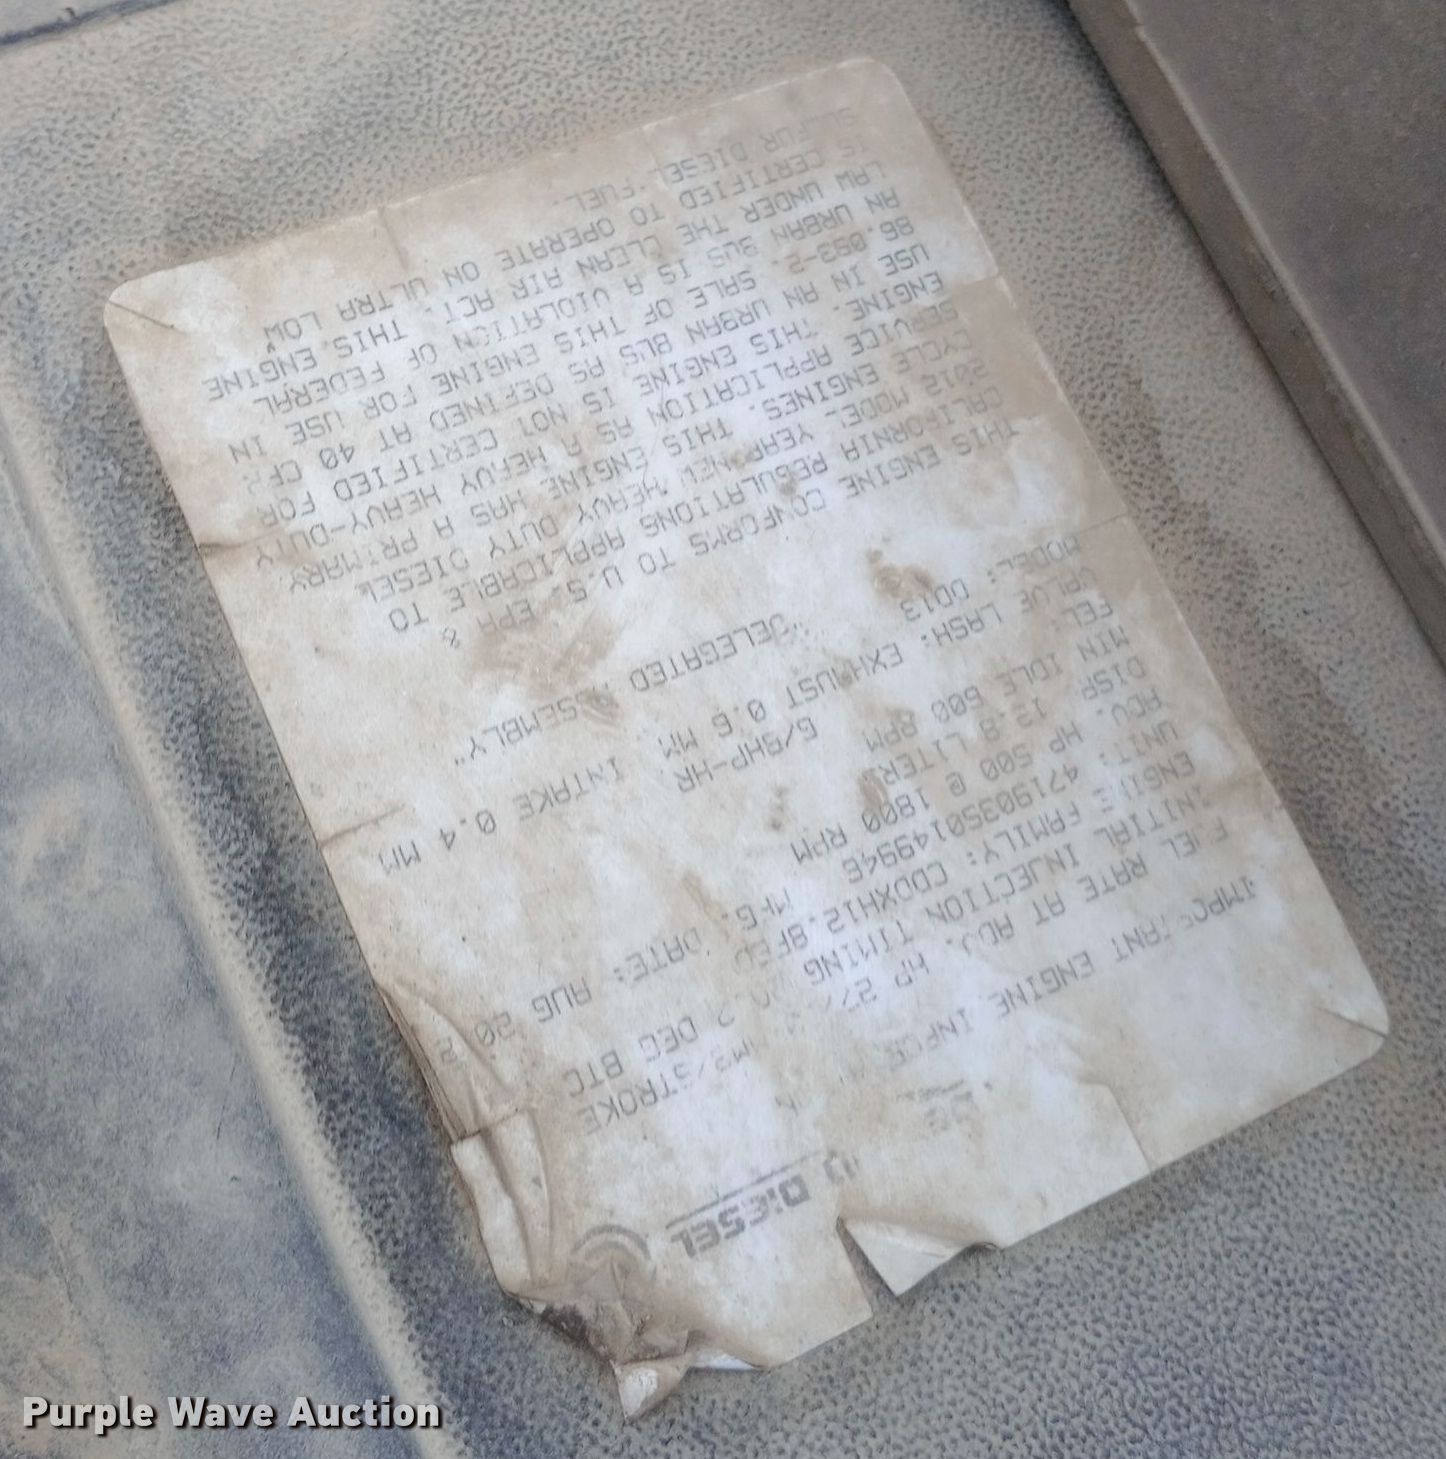 DIESEL
IMPORTANT ENGINE
FUEL RATE AT ADJ. HP 27 MM3/STROKE
INITIAL INJECTION TIMING 2 DEG BTC
ENGINE FAMILY: CDDXH12.8FED
UNIT: 471903S0149946 MFG. DATE: AUG 2012
ADV. HP 500 @ 1800 RPM
DISP 12.8 LITER
MIN IDLE 600 RPM
FEL: G/BHP-HR
VALVE LASH: EXHAUST 0.6 MM INTAKE 0.4 MM
MODEL: DD13
"DELEGATED ASSEMBLY"
THIS ENGINE CONFORMS TO U.S. EPA &
CALIFORNIA REGULATIONS APPLICABLE TO
2012 MODEL YEAR NEW HEAVY DUTY DIESEL
CYCLE ENGINES. THIS ENGINE HAS A PRIMARY
SERVICE APPLICATION AS A HEAVY HEAVY-DUTY
ENGINE. THIS ENGINE IS NOT CERTIFIED FOR
USE IN AN URBAN BUS AS DEFINED AT 40 CFR
86.093-2. SALE OF THIS ENGINE FOR USE IN
AN URBAN BUS IS A VIOLATION OF FEDERAL
LAW UNDER THE CLEAN AIR ACT. THIS ENGINE
IS CERTIFIED TO OPERATE ON ULTRA LOW
SULFUR DIESEL FUEL.
Purple Wave Auction